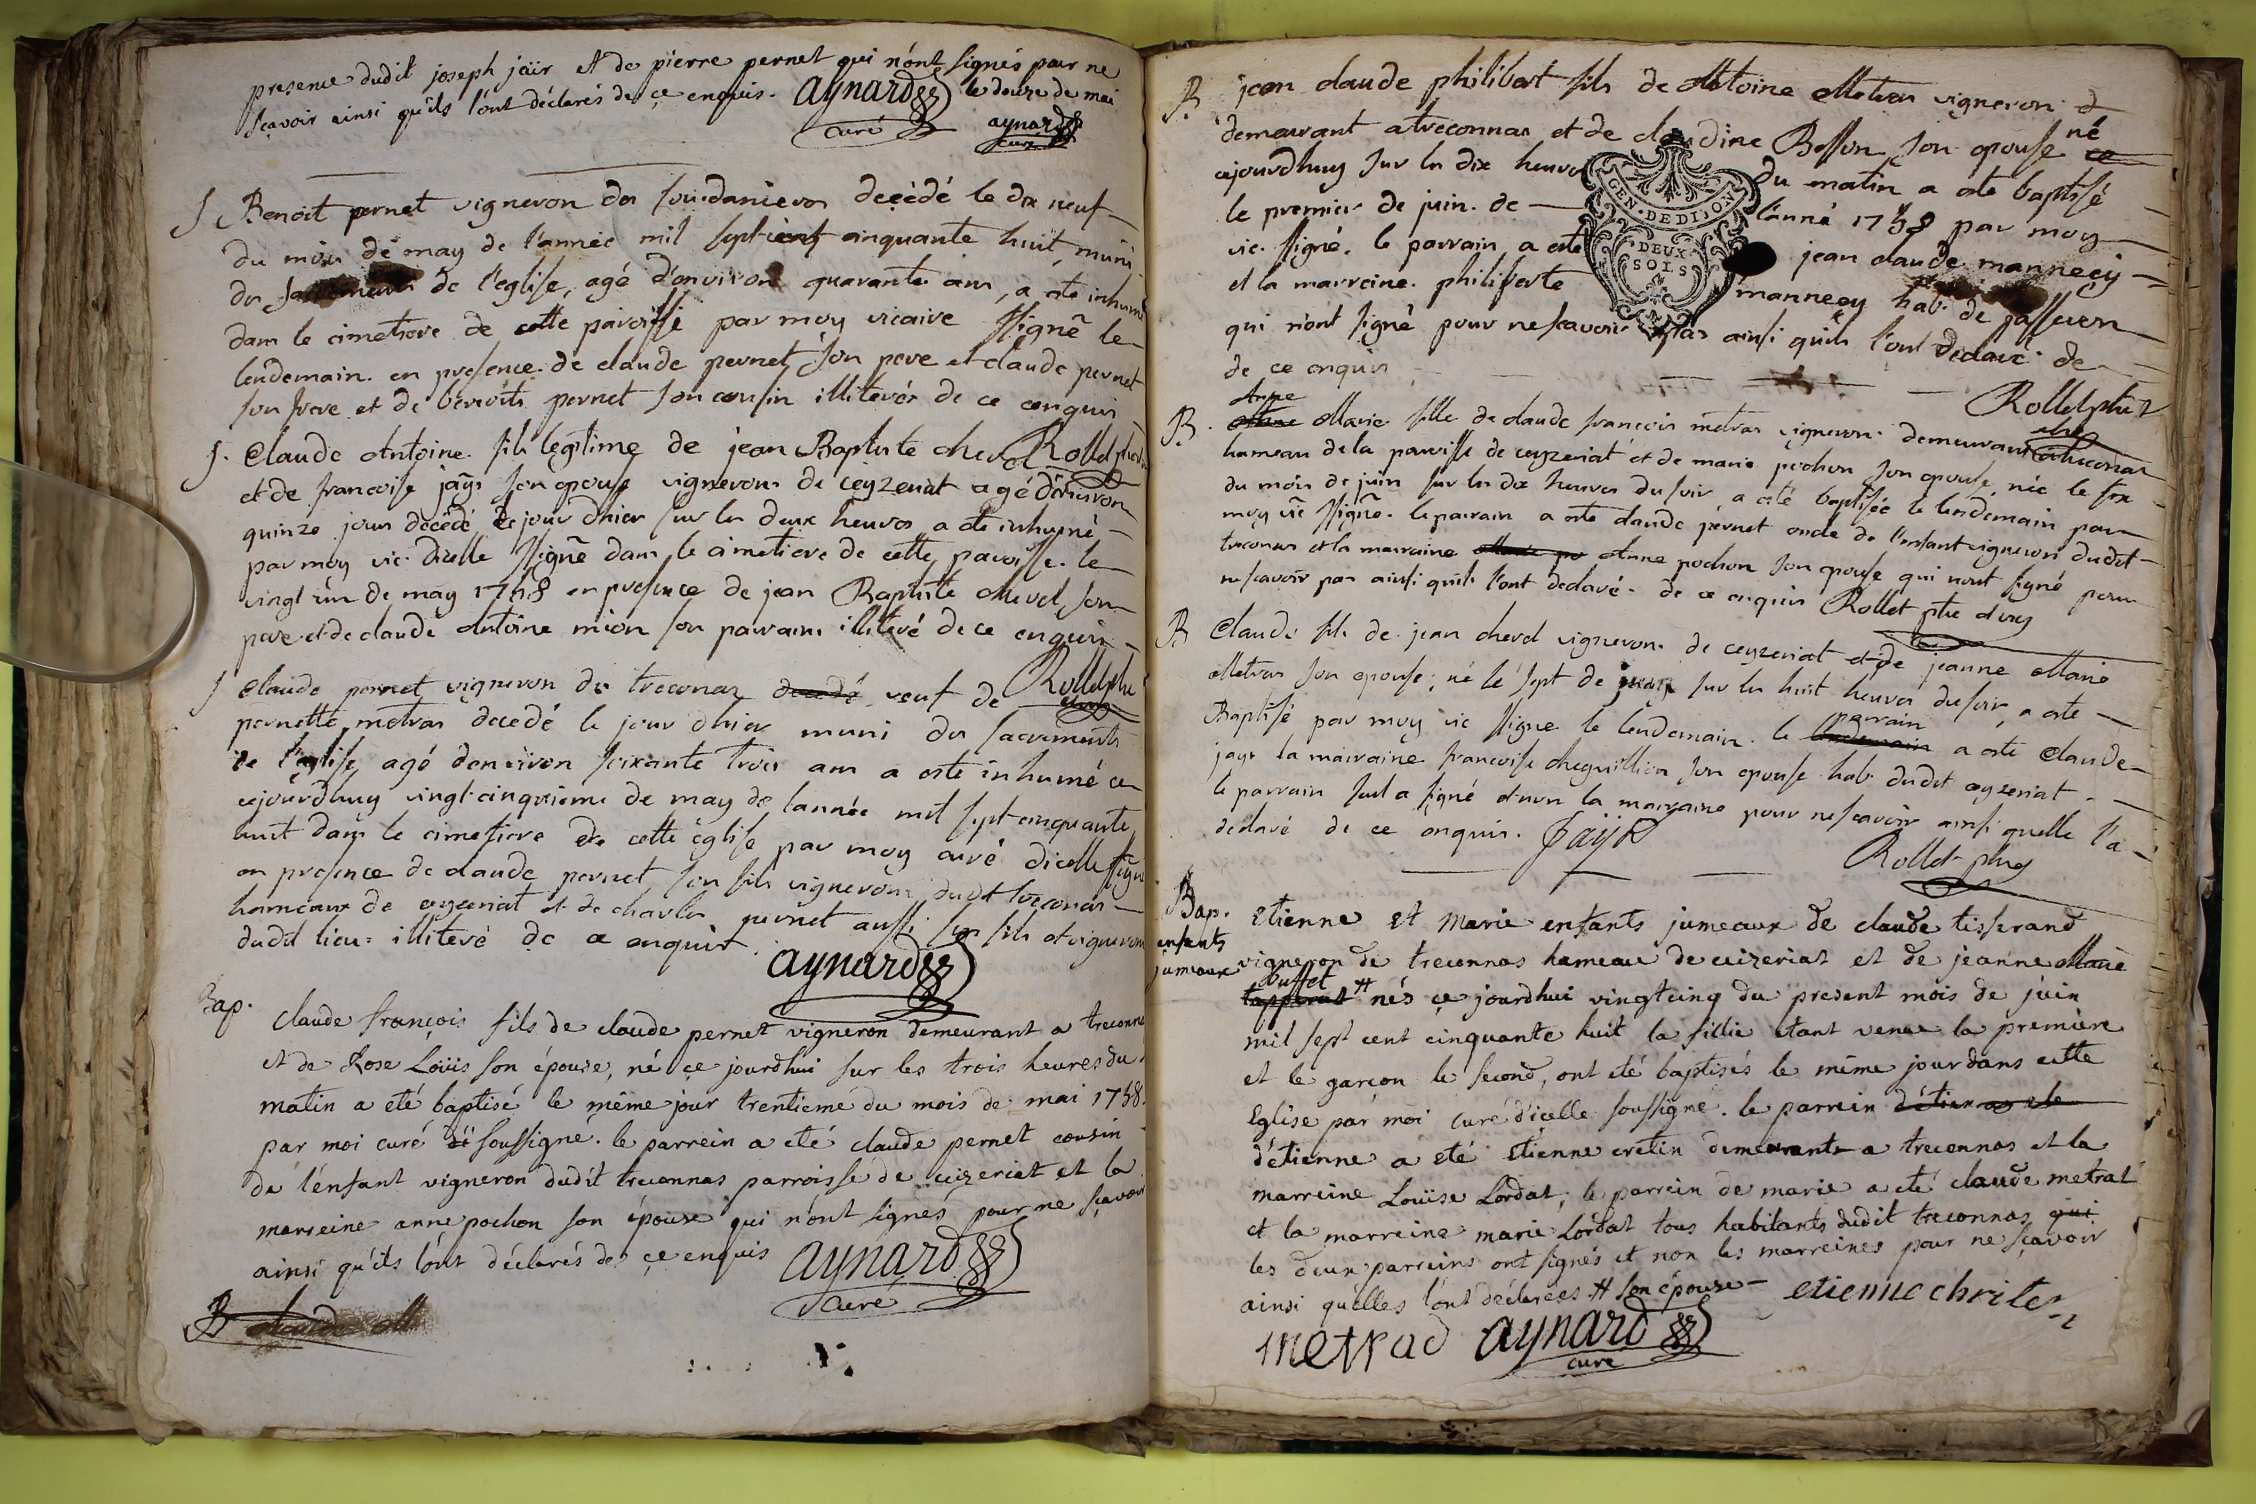 presence dudit joseph jaïr et de pierre pernet qui n'ont signés pour ne
sçavoir ainsi qu'ils l'ont déclarés de ce enquis. aynard le douze de mai
curé aynard
curé
S Benoit pernet vigneron des decèdé le dix neuf
du mois de may de l'année mil sept cent cinquante huit, muni
des sacrements de l'eglise, agé d'environ quarante ans, a ete inhumé
dans le cimetiere de cette paroisse par moy vicaire ssigné le
lendemain. en presence de claude pernet son pere et claude pernet
son frere et de benoits pernet son cousin illiterés de ce enquis
Rollet ptre
S. Claude Antoine fils legitime de jean Baptiste chevel
et de francoise jaÿr son epouse vignerons de ceyzeriat agé d'environ
quinze jours decédé le jour d'hier sur les deux heures a ete inhumé
par moy vic. dicelle ssigné dans le cimetiere de cette paroisse. le
vingt un de may 1758 en presence de jean Baptiste chevel son
pere et de claude Antoine mion son parrain illiteré de ce enquis
Rollet ptre
S Claude pernet vigneron de treconaz decedé veuf de
pernette metras decedé le jour d'hier muni des sacrements
de l'eglise agé denviron soixante trois ans a ete inhumé ce
cejourdhuy vingt-cinquieme de may de lannée mil sept cinquante
huit dans le cimetiere de cette église par moy curé dicelle ssigné
en presence de claude pernet son fils vigneron dudit treconas
hameaux de ceyzeriat et de charles pernet aussi son fils et vigneron
dudit lieu illiteré de ce enquis. aynard
Bap. claude françois fils de claude pernet vigneron demeurant a treconnas
et de Rose Loüis son épouse, né ce jourdhui sur les trois heures du
matin a eté baptisé le même jour trentieme du mois de mai 1758.
par moi curé soussigné. le parrein a eté claude pernet cousin
de l'enfant vigneron dudit treconnas parroisse de ceizeriat et la
marreine anne pochon son épouse qui n'ont signés pour ne sçavoir
ainsi qu'ils l'ont déclarés de ce enquis aynard
curé
B claude
B. jean claude philibert fils de Antoine Metras vigneron
demeurant a treconnas et de claudine Besson son epouse né ce
cejourdhuy sur les dix heures du matin a ete baptisé
le premier de juin. de l'anné 1758 par moy
vic. ssigné. le parrain a ete jean claude mannecÿ
et la marreine. philiberte mannecy hab. de jasseron
qui n'ont signé pour ne scavoir pas ainsi quils l'ont declaré de
de ce enquis
GEN. DE DIJON
DEUX
SOLS
Rollet ptre
Anne
B. Marie fille de claude francois metras vigneron demeurant a treconas
hameau de la paroisse de ceyzeriat et de marie pochon son epouse, née le six
du mois de juin sur les dix heures du soir a eté baptisée le lendemain par
moy vic ssigné. le parrain a ete claude pernet oncle de l'enfant vigneron dudit
treconas et la marraine Anne pochon son epouse qui n'ont signé pour
ne scavoir pas ainsi quils l'ont declaré. de ce enquis Rollet ptre
B Claude fils de jean chevel vigneron de ceyzeriat et de jeanne Marie
Metras son epouse, né le sept de juin sur les huit heures du soir, a ete
Baptisé par moy vic ssigné le lendemain. le lendemain parrain a ete Claude
jayr la marraine francoise son epouse hab. dudit ceyzeriat.
le parrain seul a signé et non la marraine pour ne scavoir ainsi quelle l'a
declaré de ce enquis. Jaÿr
Rollet ptre
Bap. enfants jumeaux
Etienne et Marie enfants jumeaux de claude tisserand
vigneron de treconnas hameau de ceizeriat et de jeanne Marie
buffet
# nés ce jourdhui vingtcinq du present mois de juin
mil sept cent cinquante huit la fillie étant venue la première
et le garçon le second, ont été baptisés le même jour dans cette
Eglise par moi curé d'icelle soussigné. le parrein
d'étienne a eté Etienne cretin demeurants a treconnas et la
marreine Loüise Lordat; le parrein de marie a eté claude metrat
et la marreine marie Lordat tous habitants dudit treconnas qui
les deux parreins ont signés et non les marreines pour ne sçavoir
ainsi quelles l'ont déclarées # son épouse
etienne chriten
metrad aynard
curé